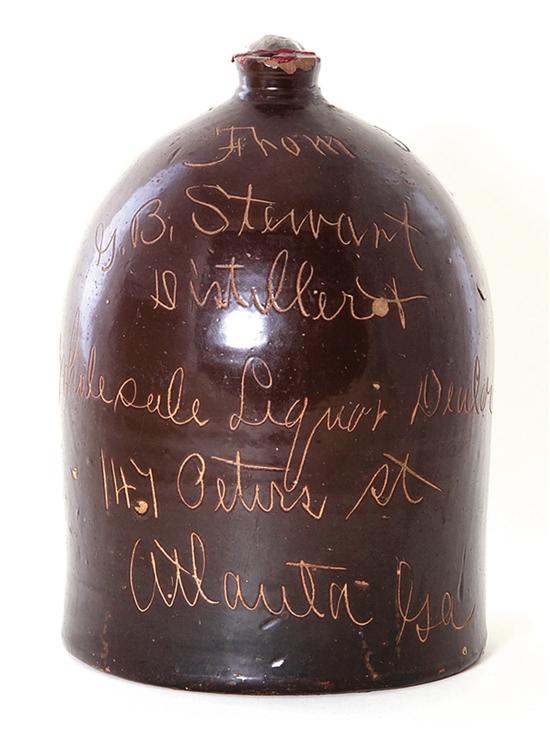 From
G. B. Stewart
Distiller +
Wholesale Liquor Dealer
147 Peters st
Atlanta Ga